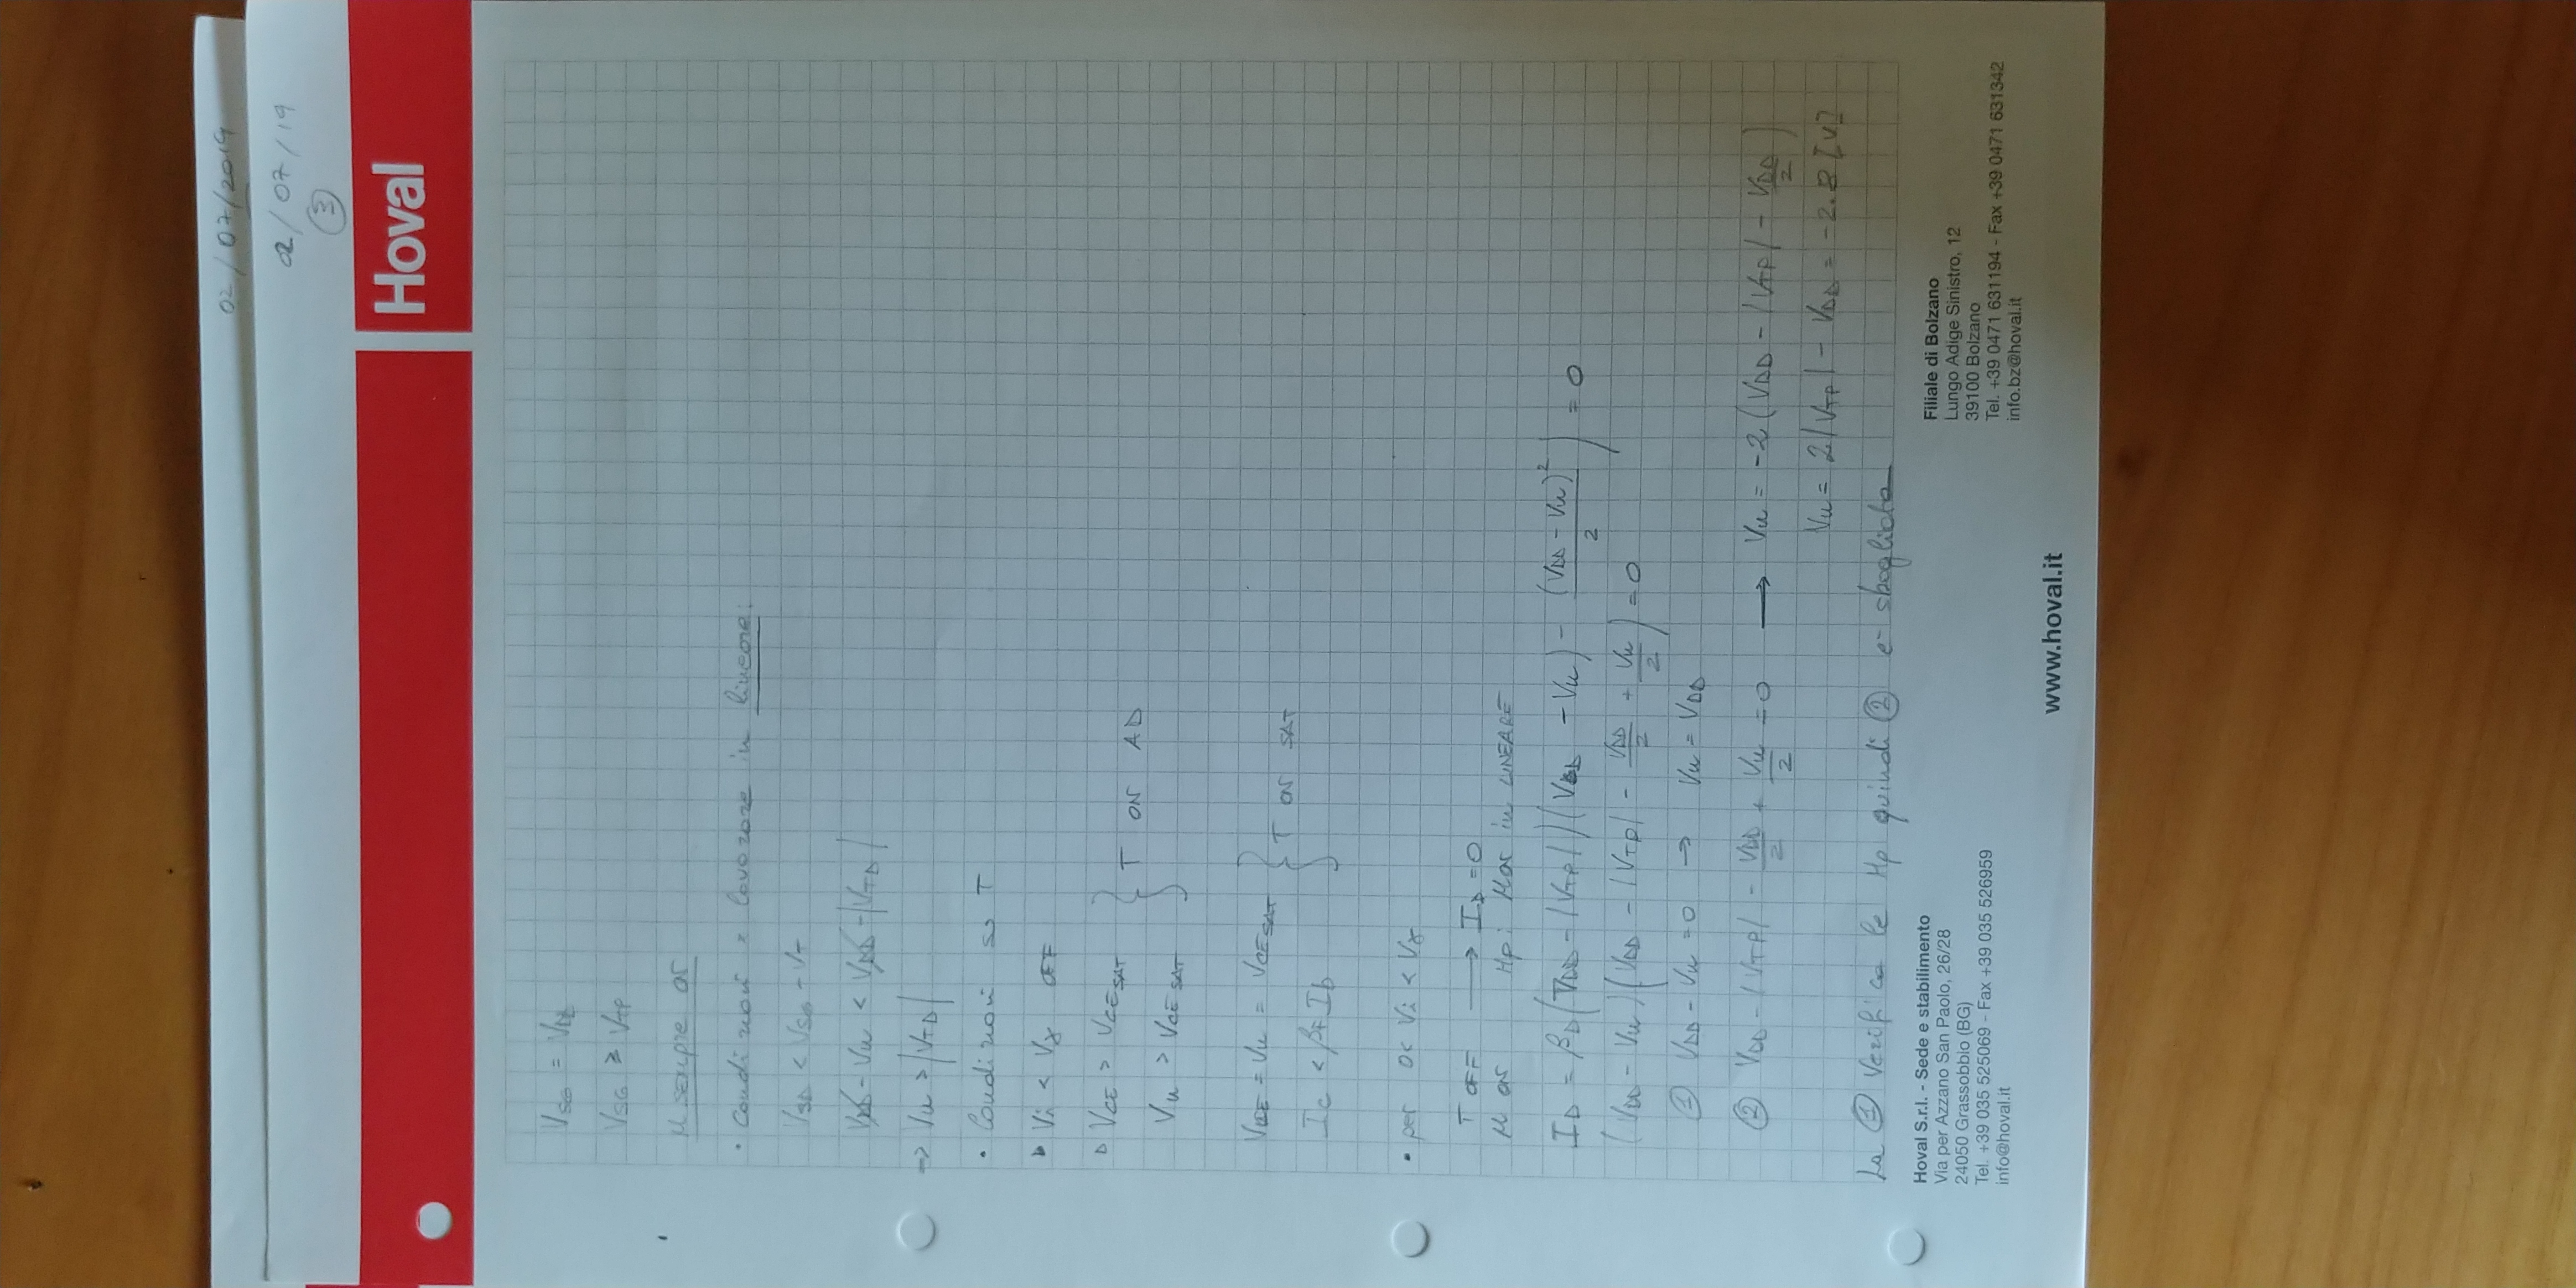 02/07/2019
02/07/19
3
Hoval
VSG = VDD
VSG ≥ VTP
M sempre on
• Condizioni x lavorare in lineare:
VSD < VSG - VT
VDD - Vu < VDD - |VTD|
=> Vu > |VTD|
• Condizioni su T
▷ Vi < Vγ OFF
▷ VCE > VCESAT } T ON AD
Vu > VCESAT
VCE = Vu = VCESAT } T ON SAT
Ic < βF Ib
• per 0 < Vi < Vγ
T OFF ⟶ ID = 0
M on Hp: M on in LINEARE
ID = βD(VDD - |VTP|)(VDD - Vu) - (VDD - Vu)²/2) = 0
(VDD - Vu)(VDD - |VTP| - VDD/2 + Vu/2) = 0
① VDD - Vu = 0 → Vu = VDD
② VDD - |VTP| - VDD/2 + Vu/2 = 0 ⟶ Vu = -2(VDD - |VTP| - VDD/2)
Vu = 2|VTP| - VDD = -2.8 [V]
La ① verifica le Hp quindi ② e' sbagliata
Hoval S.r.l. - Sede e stabilimento
Via per Azzano San Paolo, 26/28
24050 Grassobbio (BG)
Tel. +39 035 525069 - Fax +39 035 526959
info@hoval.it
Filiale di Bolzano
Lungo Adige Sinistro, 12
39100 Bolzano
Tel. +39 0471 631194 - Fax +39 0471 631342
info.bz@hoval.it
www.hoval.it